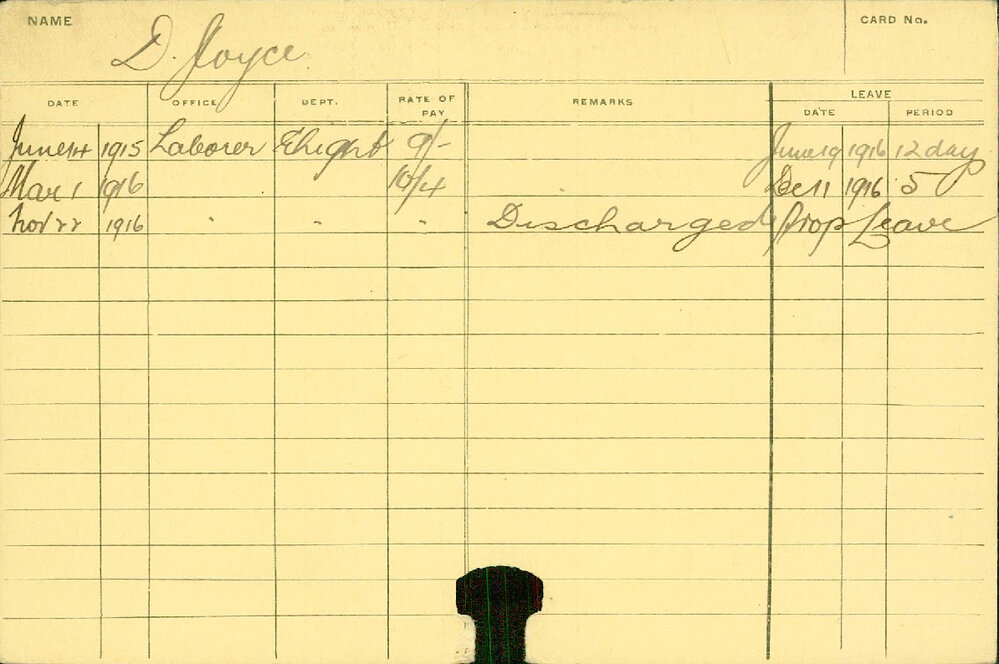 NAME D. Joyce CARD No.
DATE OFFICE DEPT. RATE OF PAY REMARKS LEAVE
DATE PERIOD
June 14 1915 Laborer 9/- June 19 1916 12 day
Mar 1 1916 10/4 Dec 11 1916 5
Nov 22 1916 " " " Discharged Prop Leave